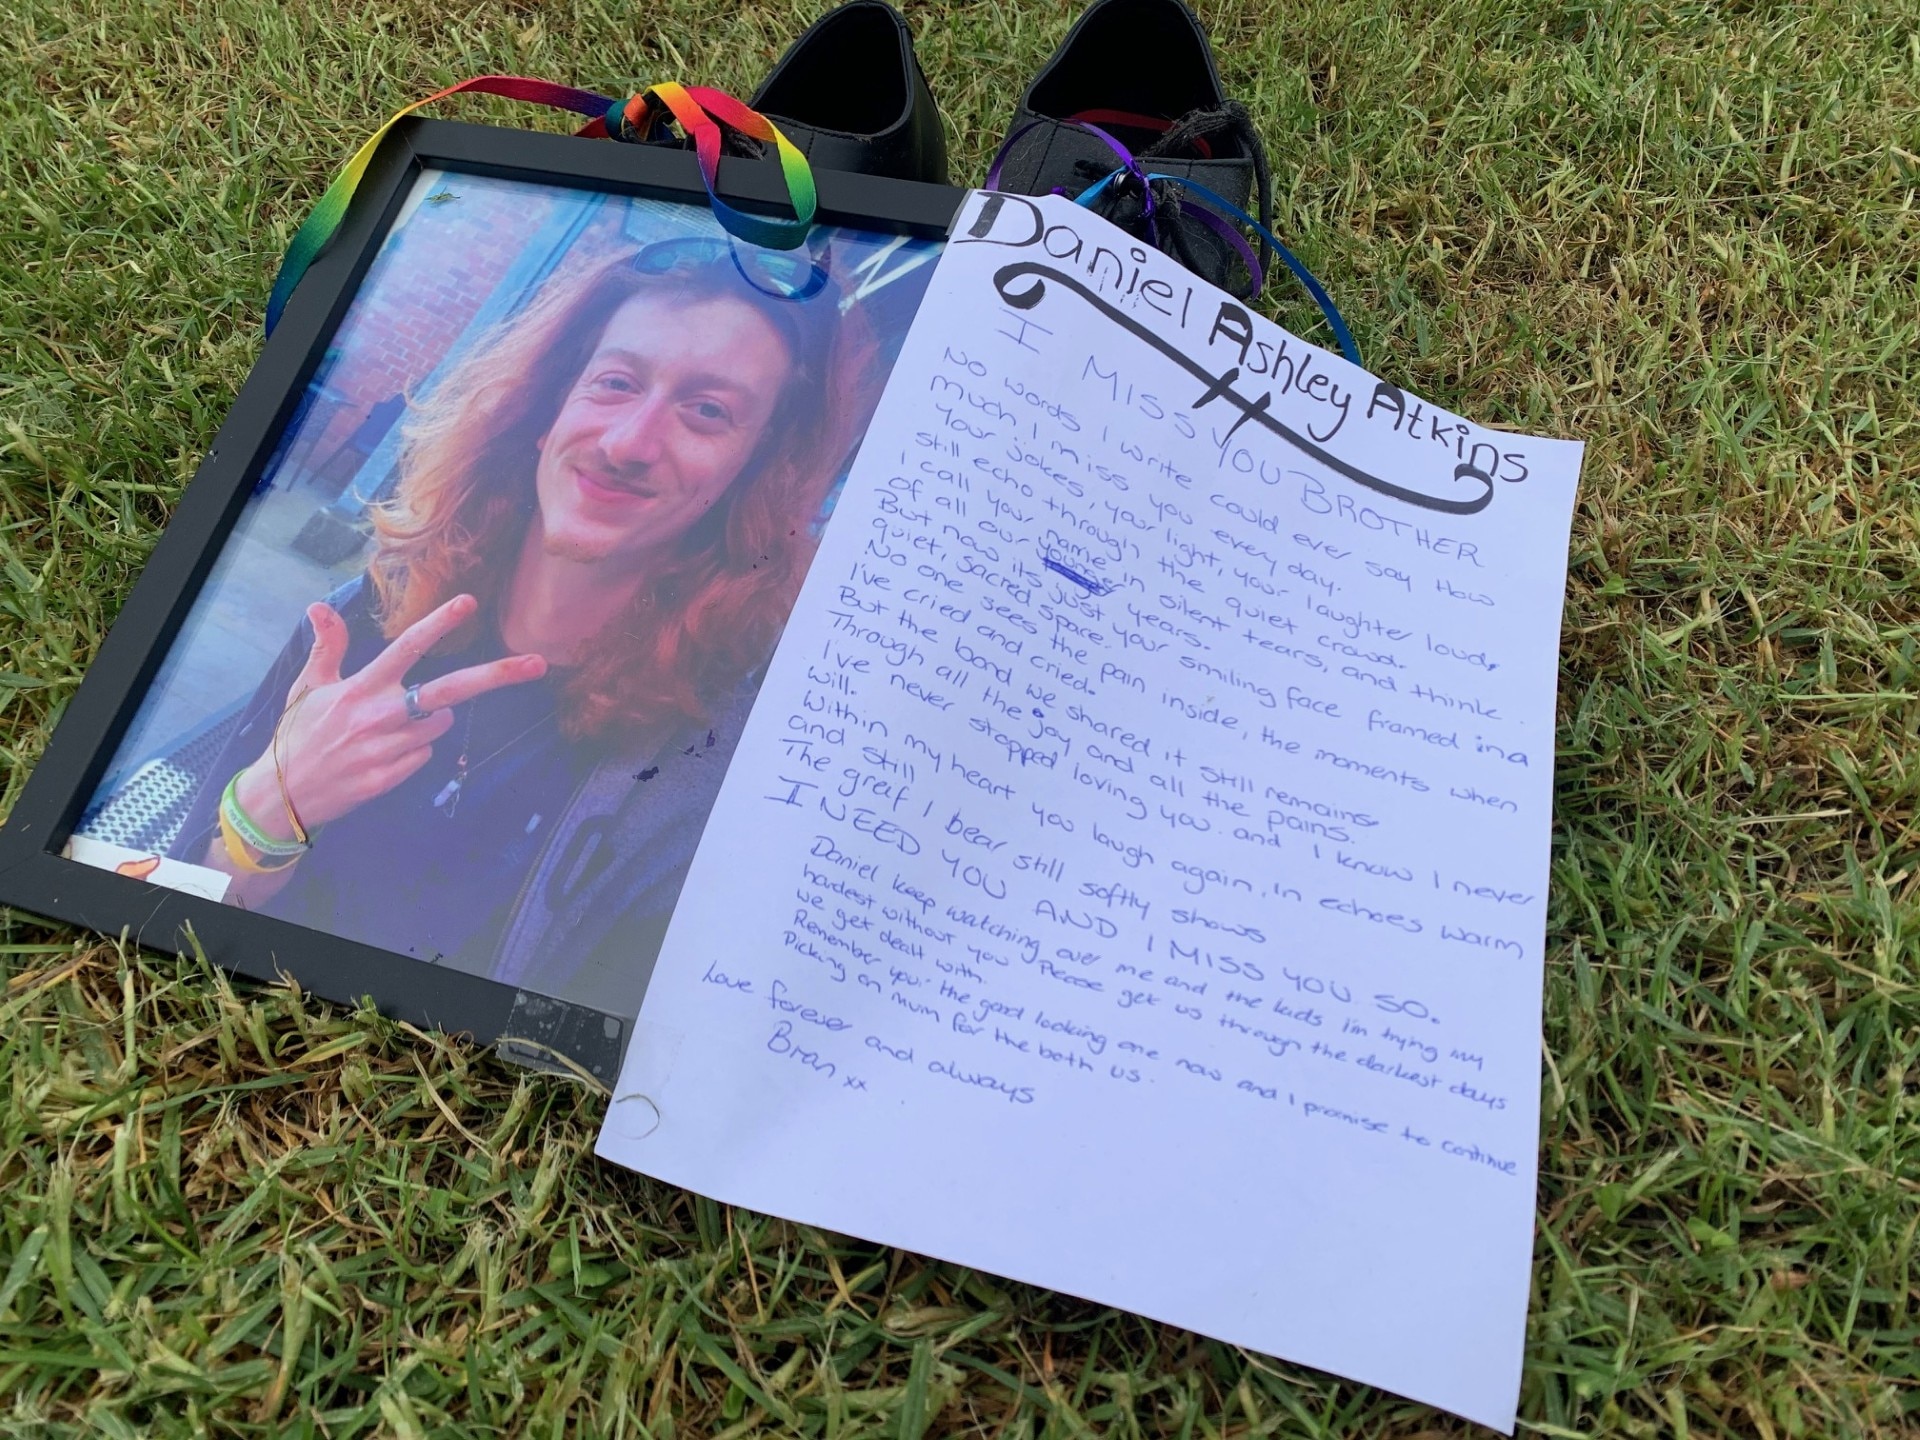 Daniel Ashley Atkins
I MISS YOU BROTHER
No words I write could ever say How
much I miss you every day.
Your jokes, your light, your laughter loud,
still echo through the quiet crowd.
I call your name in silent tears, and think
of all our years.
But now its just your smiling face framed in a
quiet, sacred space.
No one sees the pain inside, the moments when
I've cried and cried.
But the bond we shared it still remains
Through all the joy and all the pains.
I've never stopped loving you. and I know I never
will.
Within my heart you laugh again, in echoes warm
and still
The greif I bear still softly shows
I NEED YOU AND I MISS YOU SO.
Daniel keep watching over me and the kids I'm trying my
hardest without you Please get us through the darkest days
we get dealt with.
Remember your the good looking one now and I promise to continue
Picking on mum for the both us.
Love forever and always
Bran xx